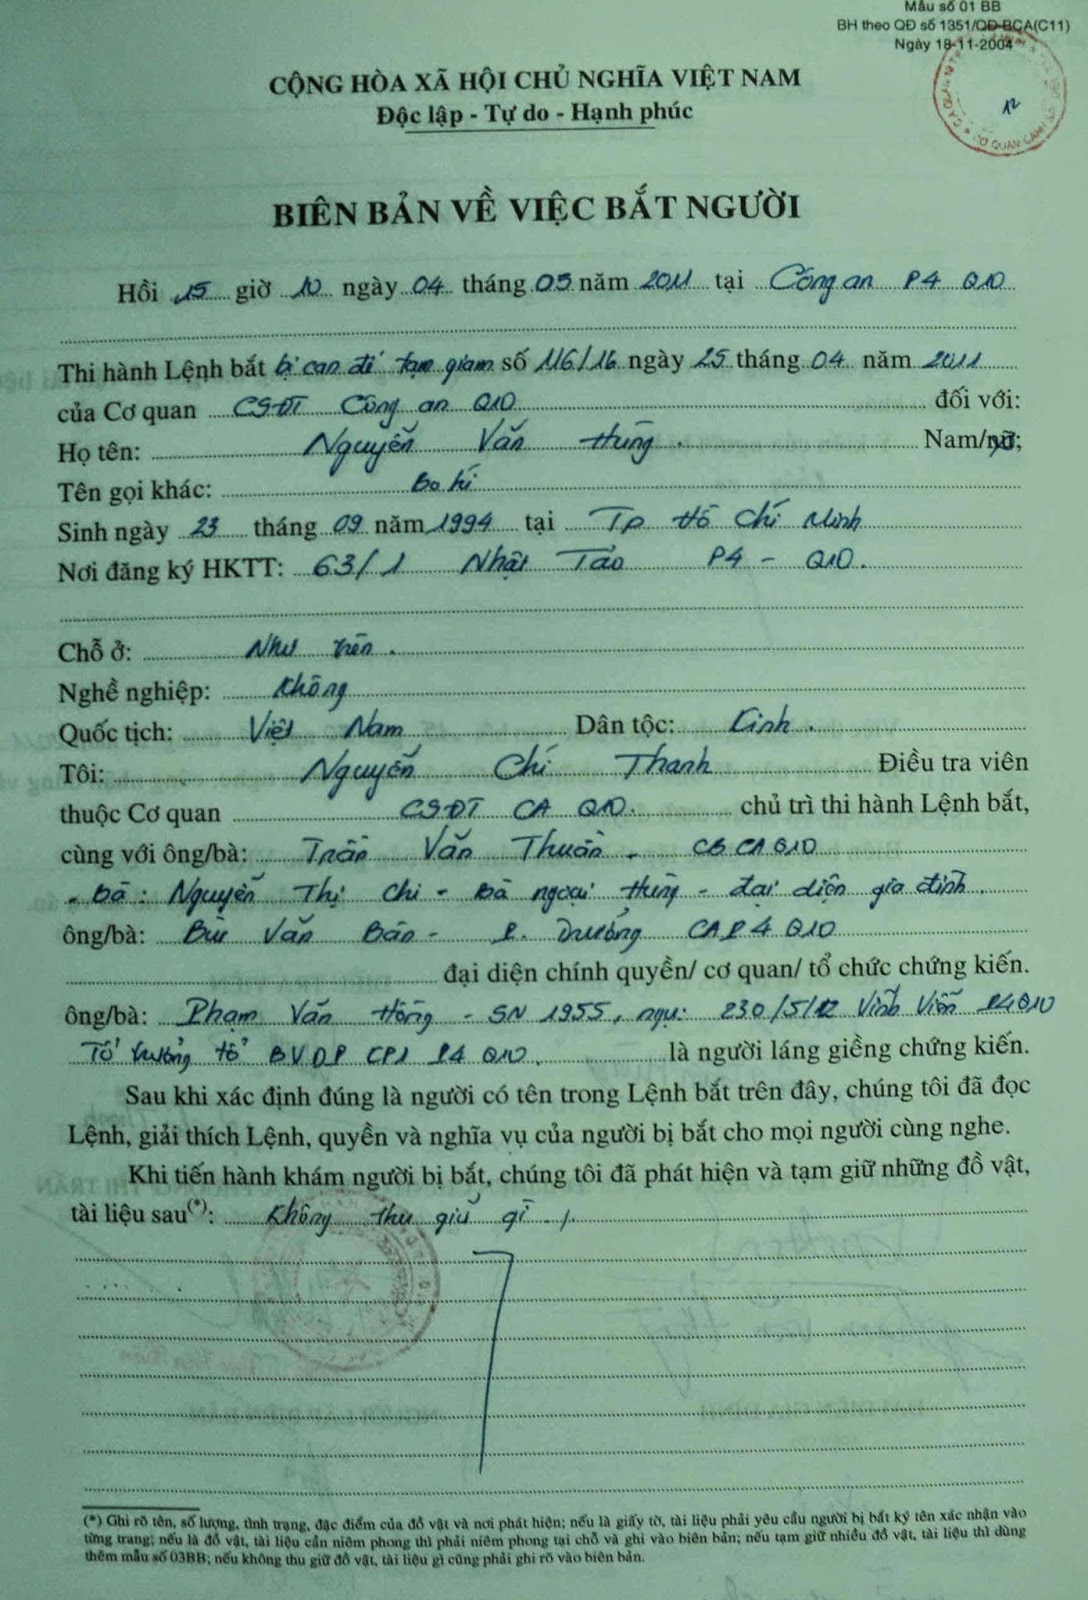 Mẫu số 01 BB
BH theo QĐ số 1351/QĐ-BCA(C11)
Ngày 18-11-2004
12
CỘNG HÒA XÃ HỘI CHỦ NGHĨA VIỆT NAM
Độc lập - Tự do - Hạnh phúc
BIÊN BẢN VỀ VIỆC BẮT NGƯỜI
Hồi 15 giờ 10 ngày 04 tháng 05 năm 2011 tại Công an P4 Q10
Thi hành Lệnh bắt bị can để tạm giam số 116/16 ngày 25 tháng 04 năm 2011
của Cơ quan CSĐT Công an Q10 đối với:
Họ tên: Nguyễn Văn Hùng. Nam/nữ;
Tên gọi khác: Bo
Sinh ngày 23 tháng 09 năm 1994 tại Tp Hồ Chí Minh
Nơi đăng ký HKTT: 63/1 Nhật Tảo P4 - Q10.
Chỗ ở: Như trên.
Nghề nghiệp: Không
Quốc tịch: Việt Nam Dân tộc: Kinh.
Tôi: Nguyễn Chí Thanh Điều tra viên
thuộc Cơ quan CSĐT CA Q10. chủ trì thi hành Lệnh bắt,
cùng với ông/bà: Trần Văn Thuần - CB CA Q10
- Bà: Nguyễn Thị Chi - Bà ngoại Hùng - đại diện gia đình.
ông/bà: Bùi Văn Bán - P. Trưởng CAP4 Q10
đại diện chính quyền/ cơ quan/ tổ chức chứng kiến.
ông/bà: Phạm Văn Hồng - SN 1955, ngụ: 230/5/12 Vĩnh Viễn P4Q10
Tổ trưởng tổ BVDP CP1 P4 Q10. là người láng giềng chứng kiến.
Sau khi xác định đúng là người có tên trong Lệnh bắt trên đây, chúng tôi đã đọc
Lệnh, giải thích Lệnh, quyền và nghĩa vụ của người bị bắt cho mọi người cùng nghe.
Khi tiến hành khám người bị bắt, chúng tôi đã phát hiện và tạm giữ những đồ vật,
tài liệu sau(*): Không thu giữ gì ./.
(*) Ghi rõ tên, số lượng, tình trạng, đặc điểm của đồ vật và nơi phát hiện; nếu là giấy tờ, tài liệu phải yêu cầu người bị bắt ký tên xác nhận vào
từng trang; nếu là đồ vật, tài liệu cần niêm phong thì phải niêm phong tại chỗ và ghi vào biên bản; nếu tạm giữ nhiều đồ vật, tài liệu thì dùng
thêm mẫu số 03BB; nếu không thu giữ đồ vật, tài liệu gì cũng phải ghi rõ vào biên bản.